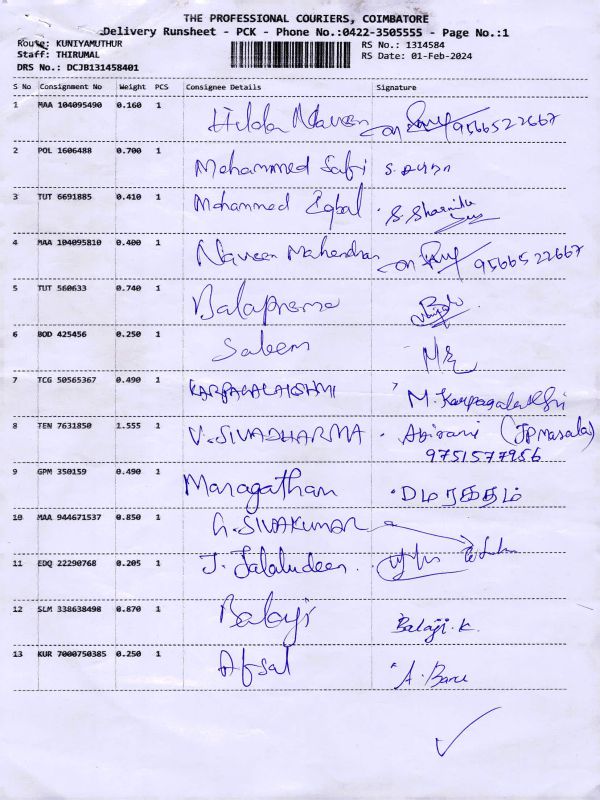 THE PROFESSIONAL COURIERS, COIMBATORE
Delivery Runsheet - PCK - Phone No.:0422-3505555 - Page No.:1
Route: KUNIYAMUTHUR RS No.: 1314584
Staff: THIRUMAL RS Date: 01-Feb-2024
DRS No.: DCJB131458401
S No Consignment No Weight PCS Consignee Details Signature
1 MAA 104095490 0.160 1 Hilda Naveen 9566522667
2 POL 1606488 0.700 1 Mohammed Safi
3 TUT 6691885 0.410 1 Mohammed Iqbal S. Sharmila
4 MAA 104095810 0.400 1 Naveen Mahendran 9566522667
5 TUT 560633 0.740 1 Balaprema
6 BOD 425456 0.250 1 Saleem
7 TCG 50565367 0.490 1 KARPAGALAKSHMI M. Karpagalakshmi
8 TEN 7631850 1.555 1 V. SIVADHARMA Abirami (JP masala)
9751577956
9 GPM 350159 0.490 1 Maragatham மரகதம்
10 MAA 944671537 0.850 1 G. SIVAKUMAR
11 EDQ 22290768 0.205 1 J. Jalaludeen.
12 SLM 338638498 0.870 1 Balaji Balaji. K.
13 KUR 7000750385 0.250 1 Afsal A. Banu